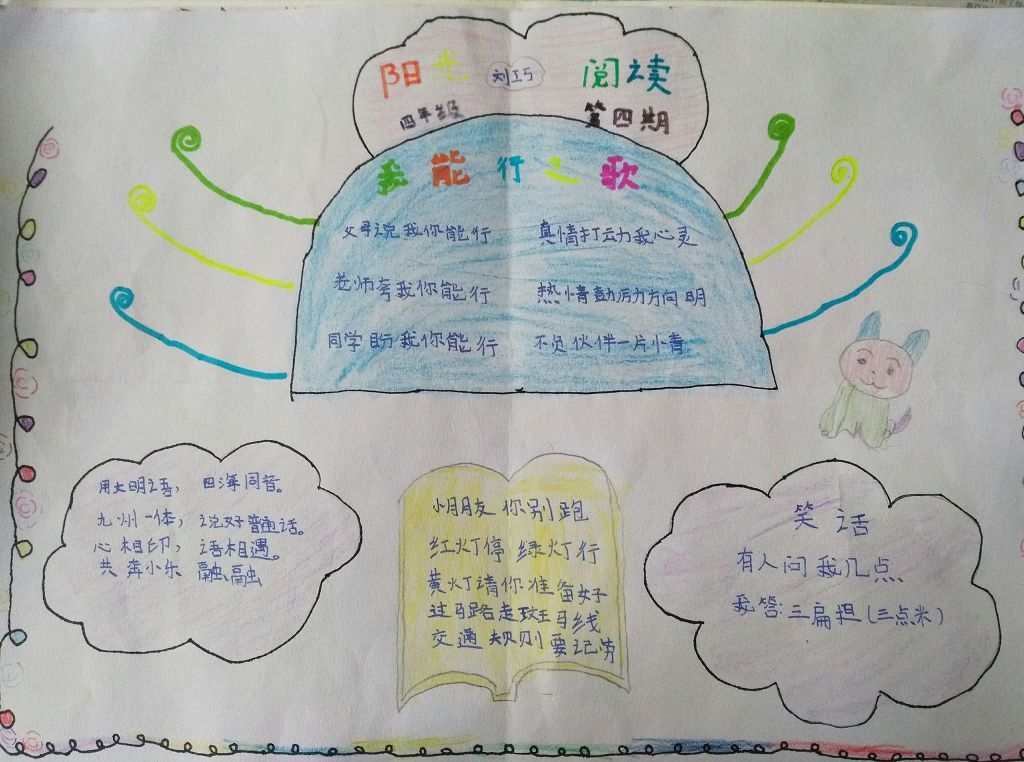 阳光 刘巧 阅读
四年级 第四期
我能行之歌
父母说我你能行 真情打动我心灵
老师夸我你能行 热情鼓励方向明
同学盼我你能行 不负伙伴一片小青
用文明之语，四海同音。
九州一体，说好普通话。
心相印，语相遇。
共奔小乐 融融
小朋友 你别跑
红灯停 绿灯行
黄灯请你准备好
过马路走斑马线
交通规则要记劳
笑话
有人问我几点
我答:三扁担(三点米)